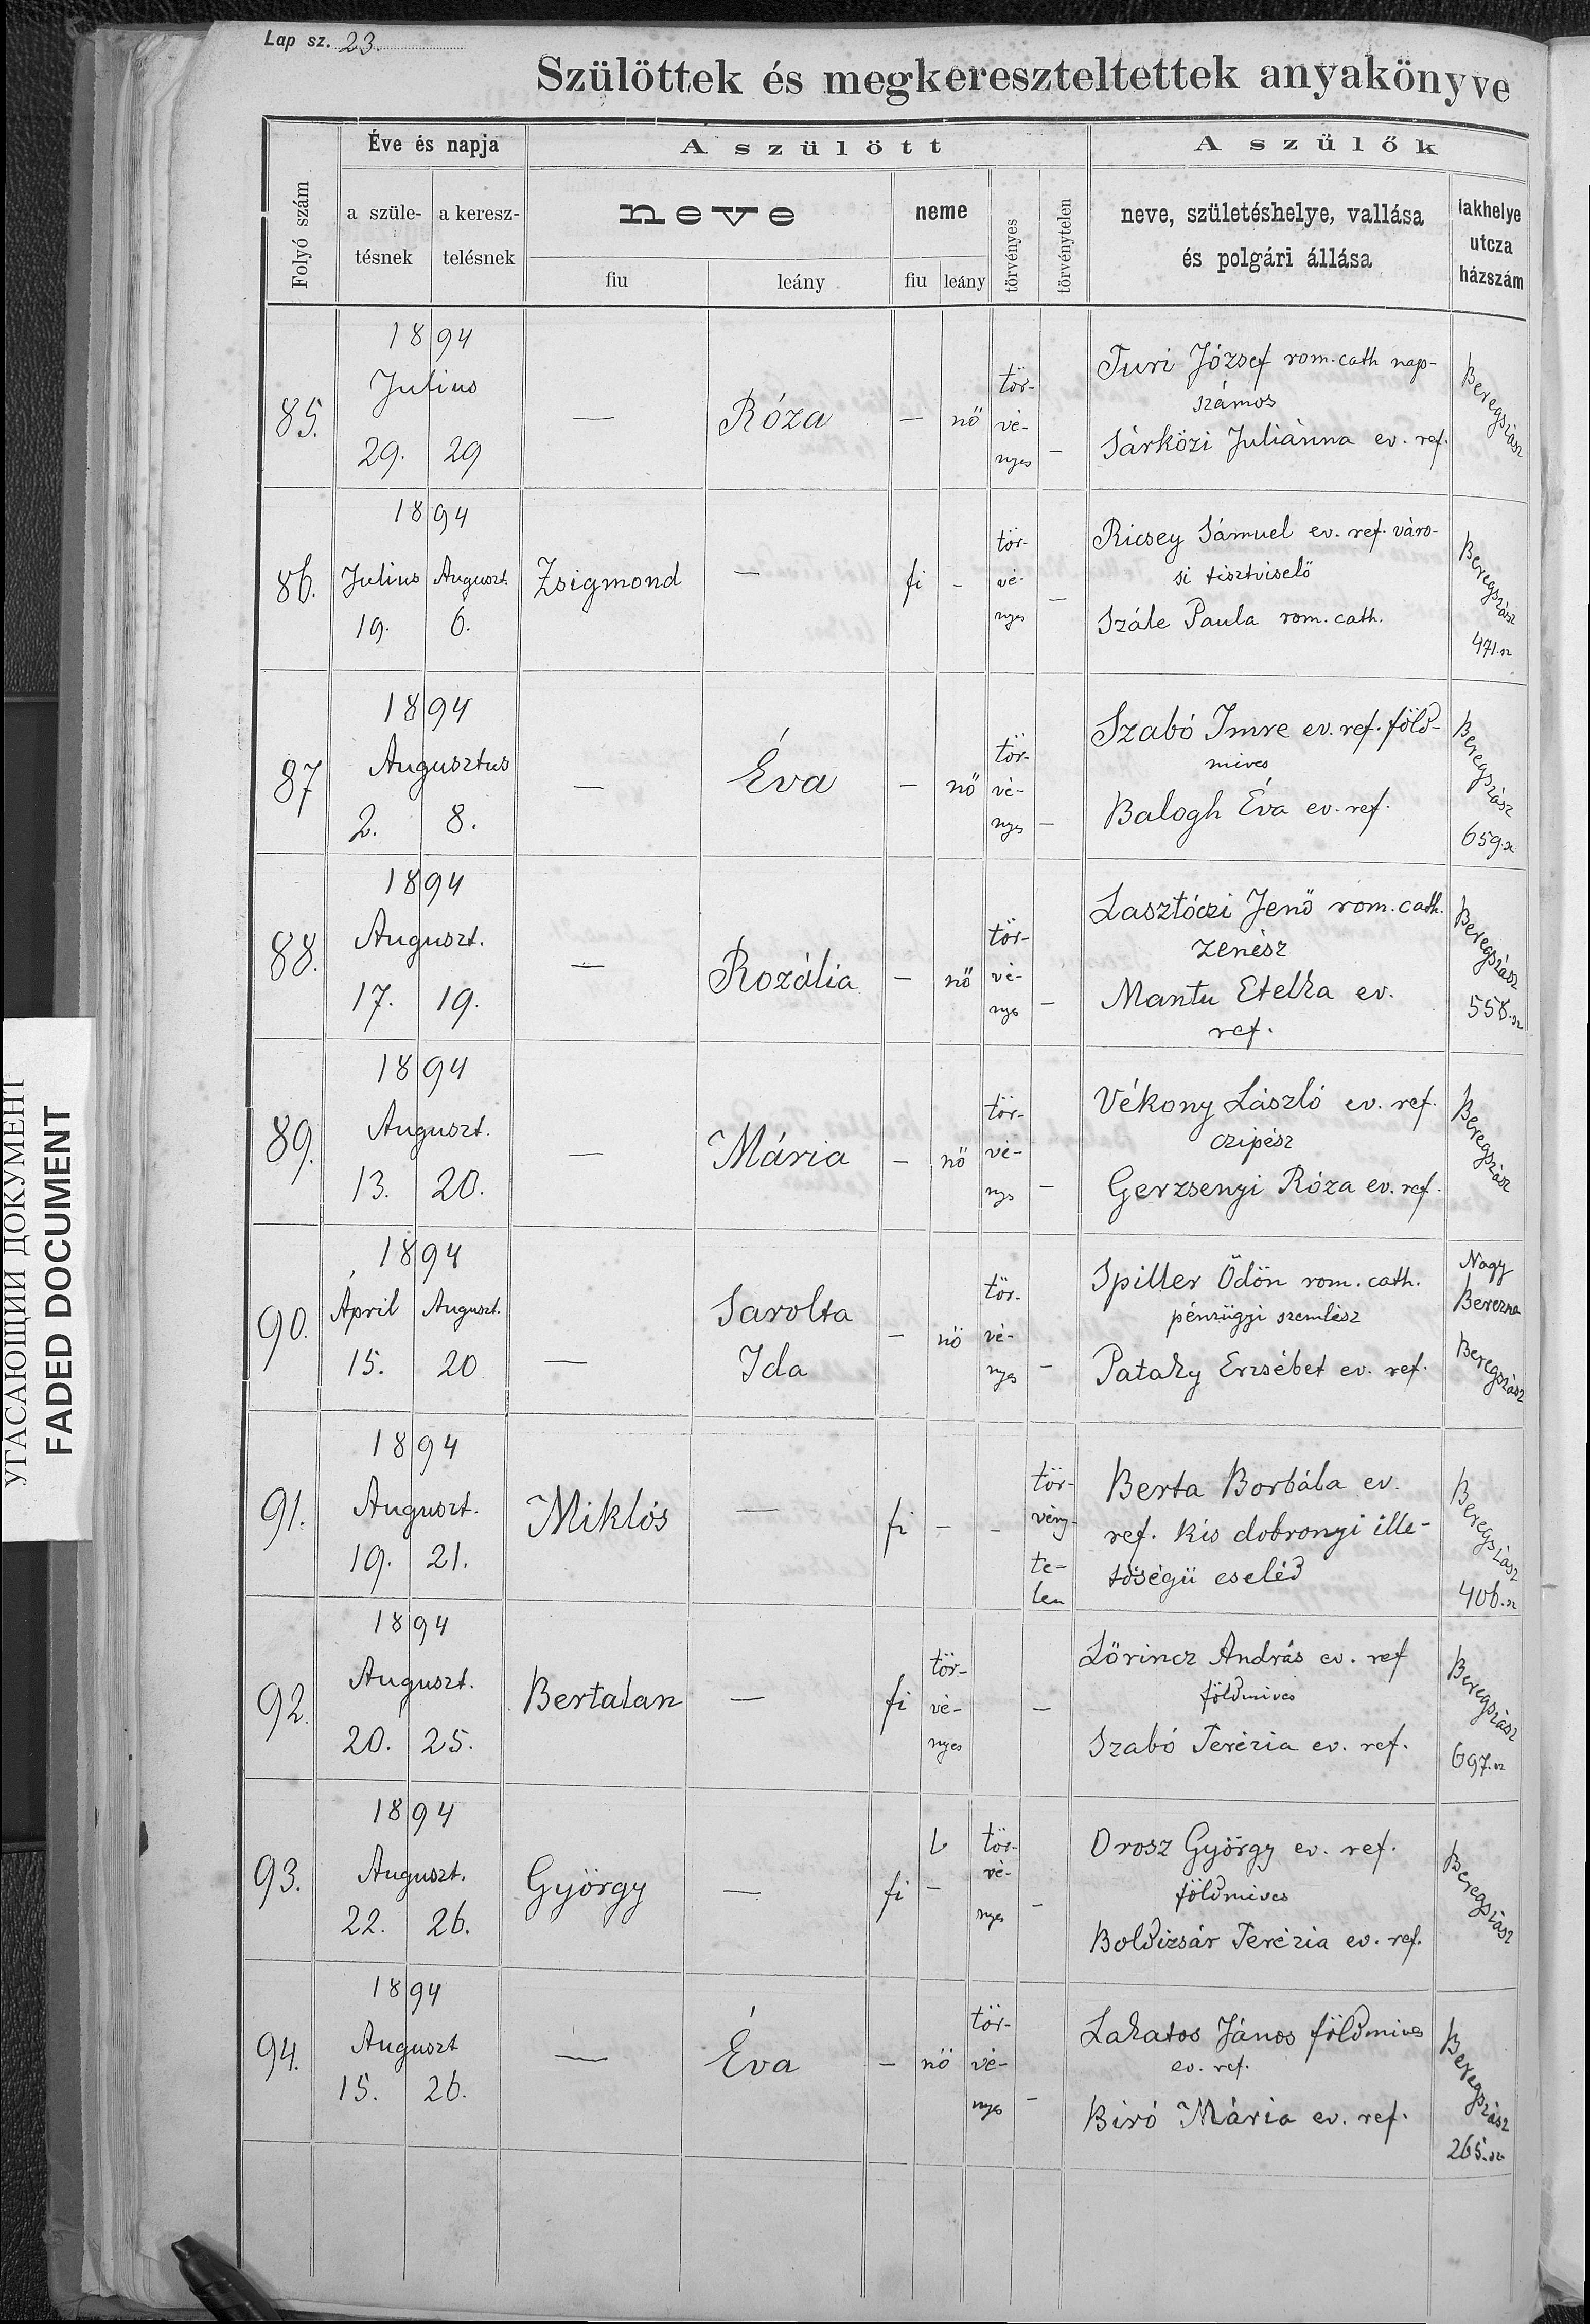 Lap sz. 23.
Szülöttek és megkereszteltettek anyakönyve
Folyó szám
Éve és napja
a szüle-
tésnek
a keresz-
telésnek
A szülött
neve
fiu
leány
neme
fiu
leány
törvényes
törvénytelen
A szülők
neve, születéshelye, vallása
és polgári állása
lakhelye
utcza
házszám
85.
1894
Julius
29. 29
—
Róza
—
nő
tör-
vé-
nyes
—
Turi József rom. cath nap-
számos
Sárközi Juliánna ev. ref.
Beregszász
86.
1894
Julius Auguszt.
19. 6.
Zsigmond
—
fi
-
tör-
vé-
nyes
—
Ricsey Sámuel ev. ref. váro-
si tisztviselő
Szále Paula rom. cath.
Beregszász
471. sz
87
1894
Augusztus
2. 8.
—
Éva
—
nő
tör-
vé-
nyes
—
Szabó Imre ev. ref. föld-
mives
Balogh Éva ev. ref.
Beregszász
659. sz
88.
1894
Auguszt.
17. 19.
—
Rozália
—
nő
tör-
vé-
nyes
—
Lasztóczi Jenő rom. cath.
zenész
Mantu Etelka ev.
ref.
Beregszász
558. sz
89.
1894
Auguszt.
13. 20.
—
Mária
—
nő
tör-
vé-
nys
—
Vékony László ev. ref.
czipész
Gerzsenyi Róza ev. ref.
Beregszász
90.
1894
Április Auguszt.
15. 20
—
Sarolta
Ida
—
nő
tör-
vé-
nyes
—
Spiller Ödön rom. cath.
pénzügyi szemlész
Pataky Erzsébet ev. ref.
Nagy
Berezna
Beregszász
91.
1894
Auguszt.
19. 21.
Miklós
—
fi
-
-
tör-
vény-
te-
len
Berta Borbála ev.
ref. kis dobronyi ille-
tőségü cseléd
Beregszász
406. sz
92.
1894
Auguszt.
20. 25.
Bertalan
—
fi
tör-
vé-
nyes
—
Lőrincz András ev. ref
földmives
Szabó Terézia ev. ref.
Beregszász
697. sz
93.
1894
Auguszt.
22. 26.
György
—
fi
-
tör-
vé-
nyes
-
Orosz György ev. ref.
földmives
Boldizsár Terézia ev. ref.
Beregszász
94.
1894
Auguszt
15. 26.
—
Éva
—
nő
tör-
vé-
nyes
-
Lakatos János földmives
ev. ref.
Biró Mária ev. ref.
Beregszász
265. sz
УГАСАЮЩИЙ ДОКУМЕНТ
FADED DOCUMENT